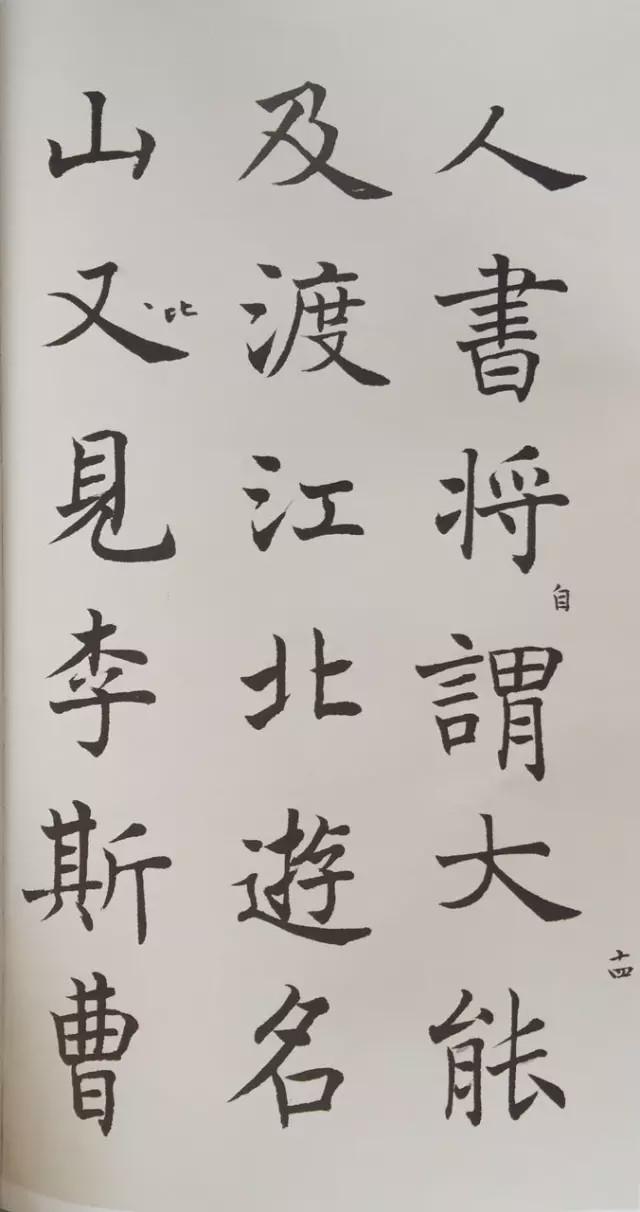 人書将謂大能
自
十四
及渡江北遊名
山又見李斯曹
比